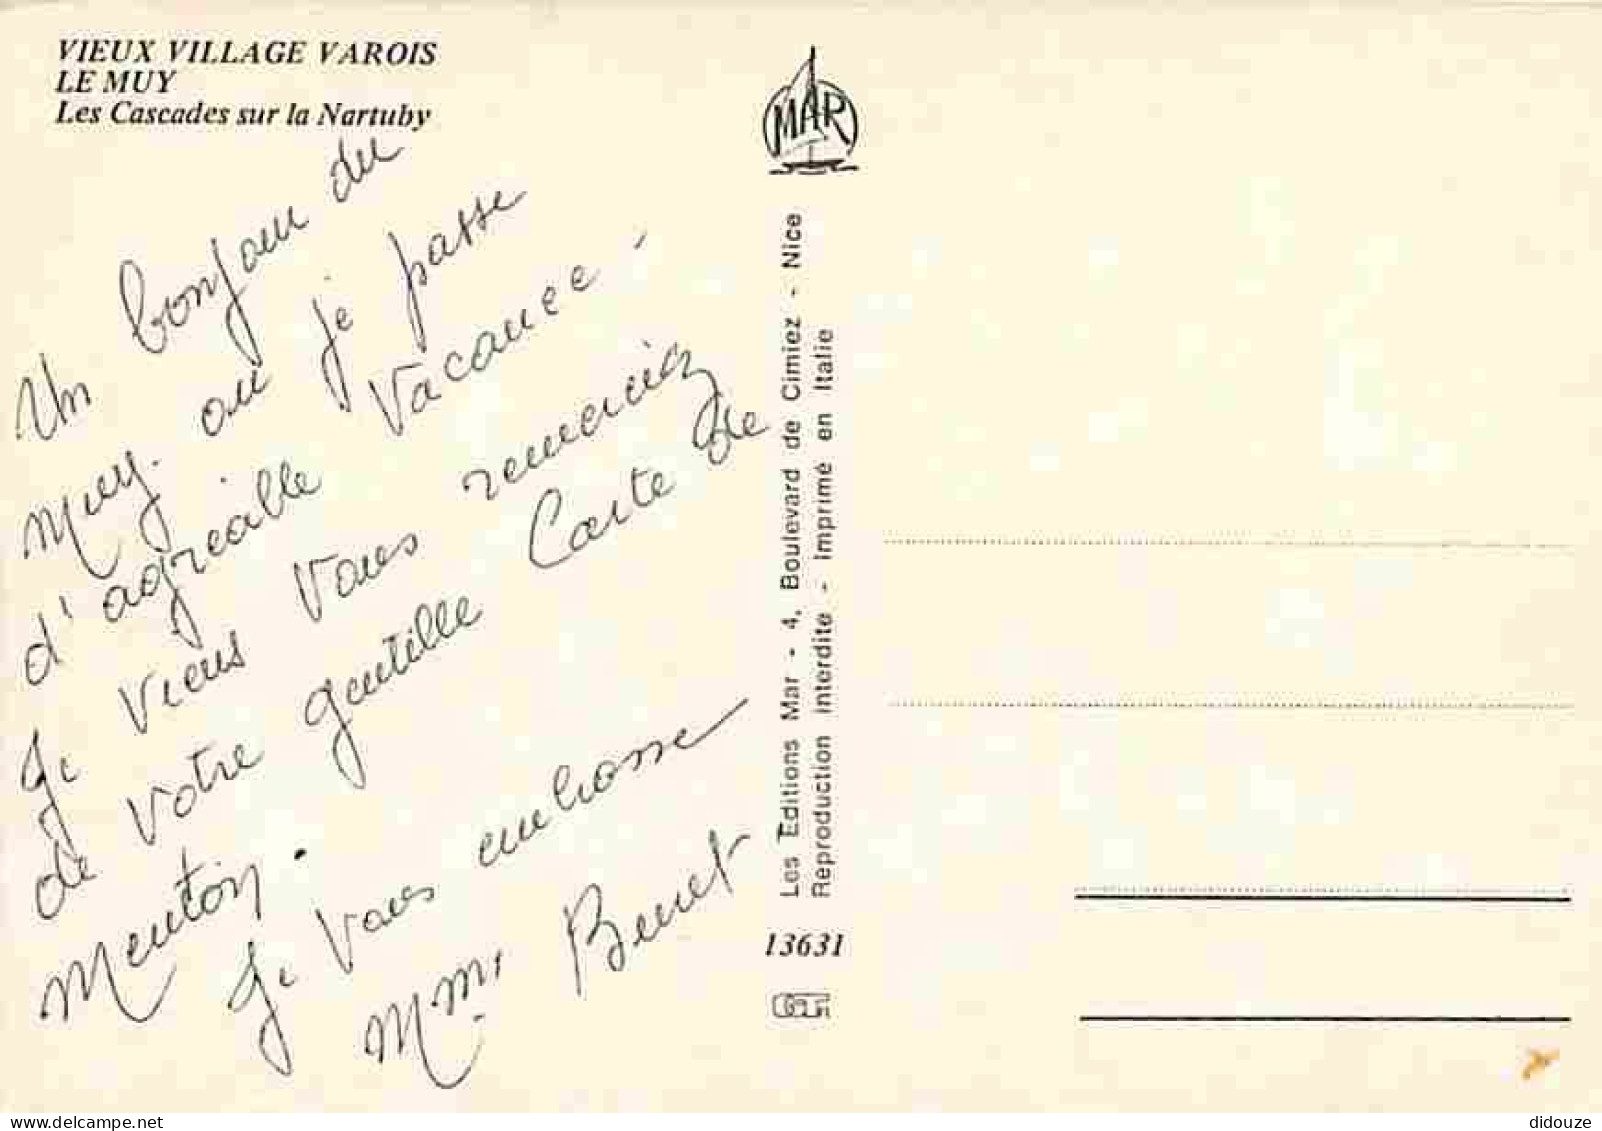 VIEUX VILLAGE VAROIS
LE MUY
Les Cascades sur la Nartuby
Un bonjour du
Muy. ou je passe
d'agréable vacance -
Je viens vous remerciez
de votre gentille Carte de
Menton.
Je vous embrasse
Mme Benet
MAR
Les Editions Mar - 4, Boulevard de Cimiez - Nice
Reproduction interdite - Imprimé en Italie
13631
didouze